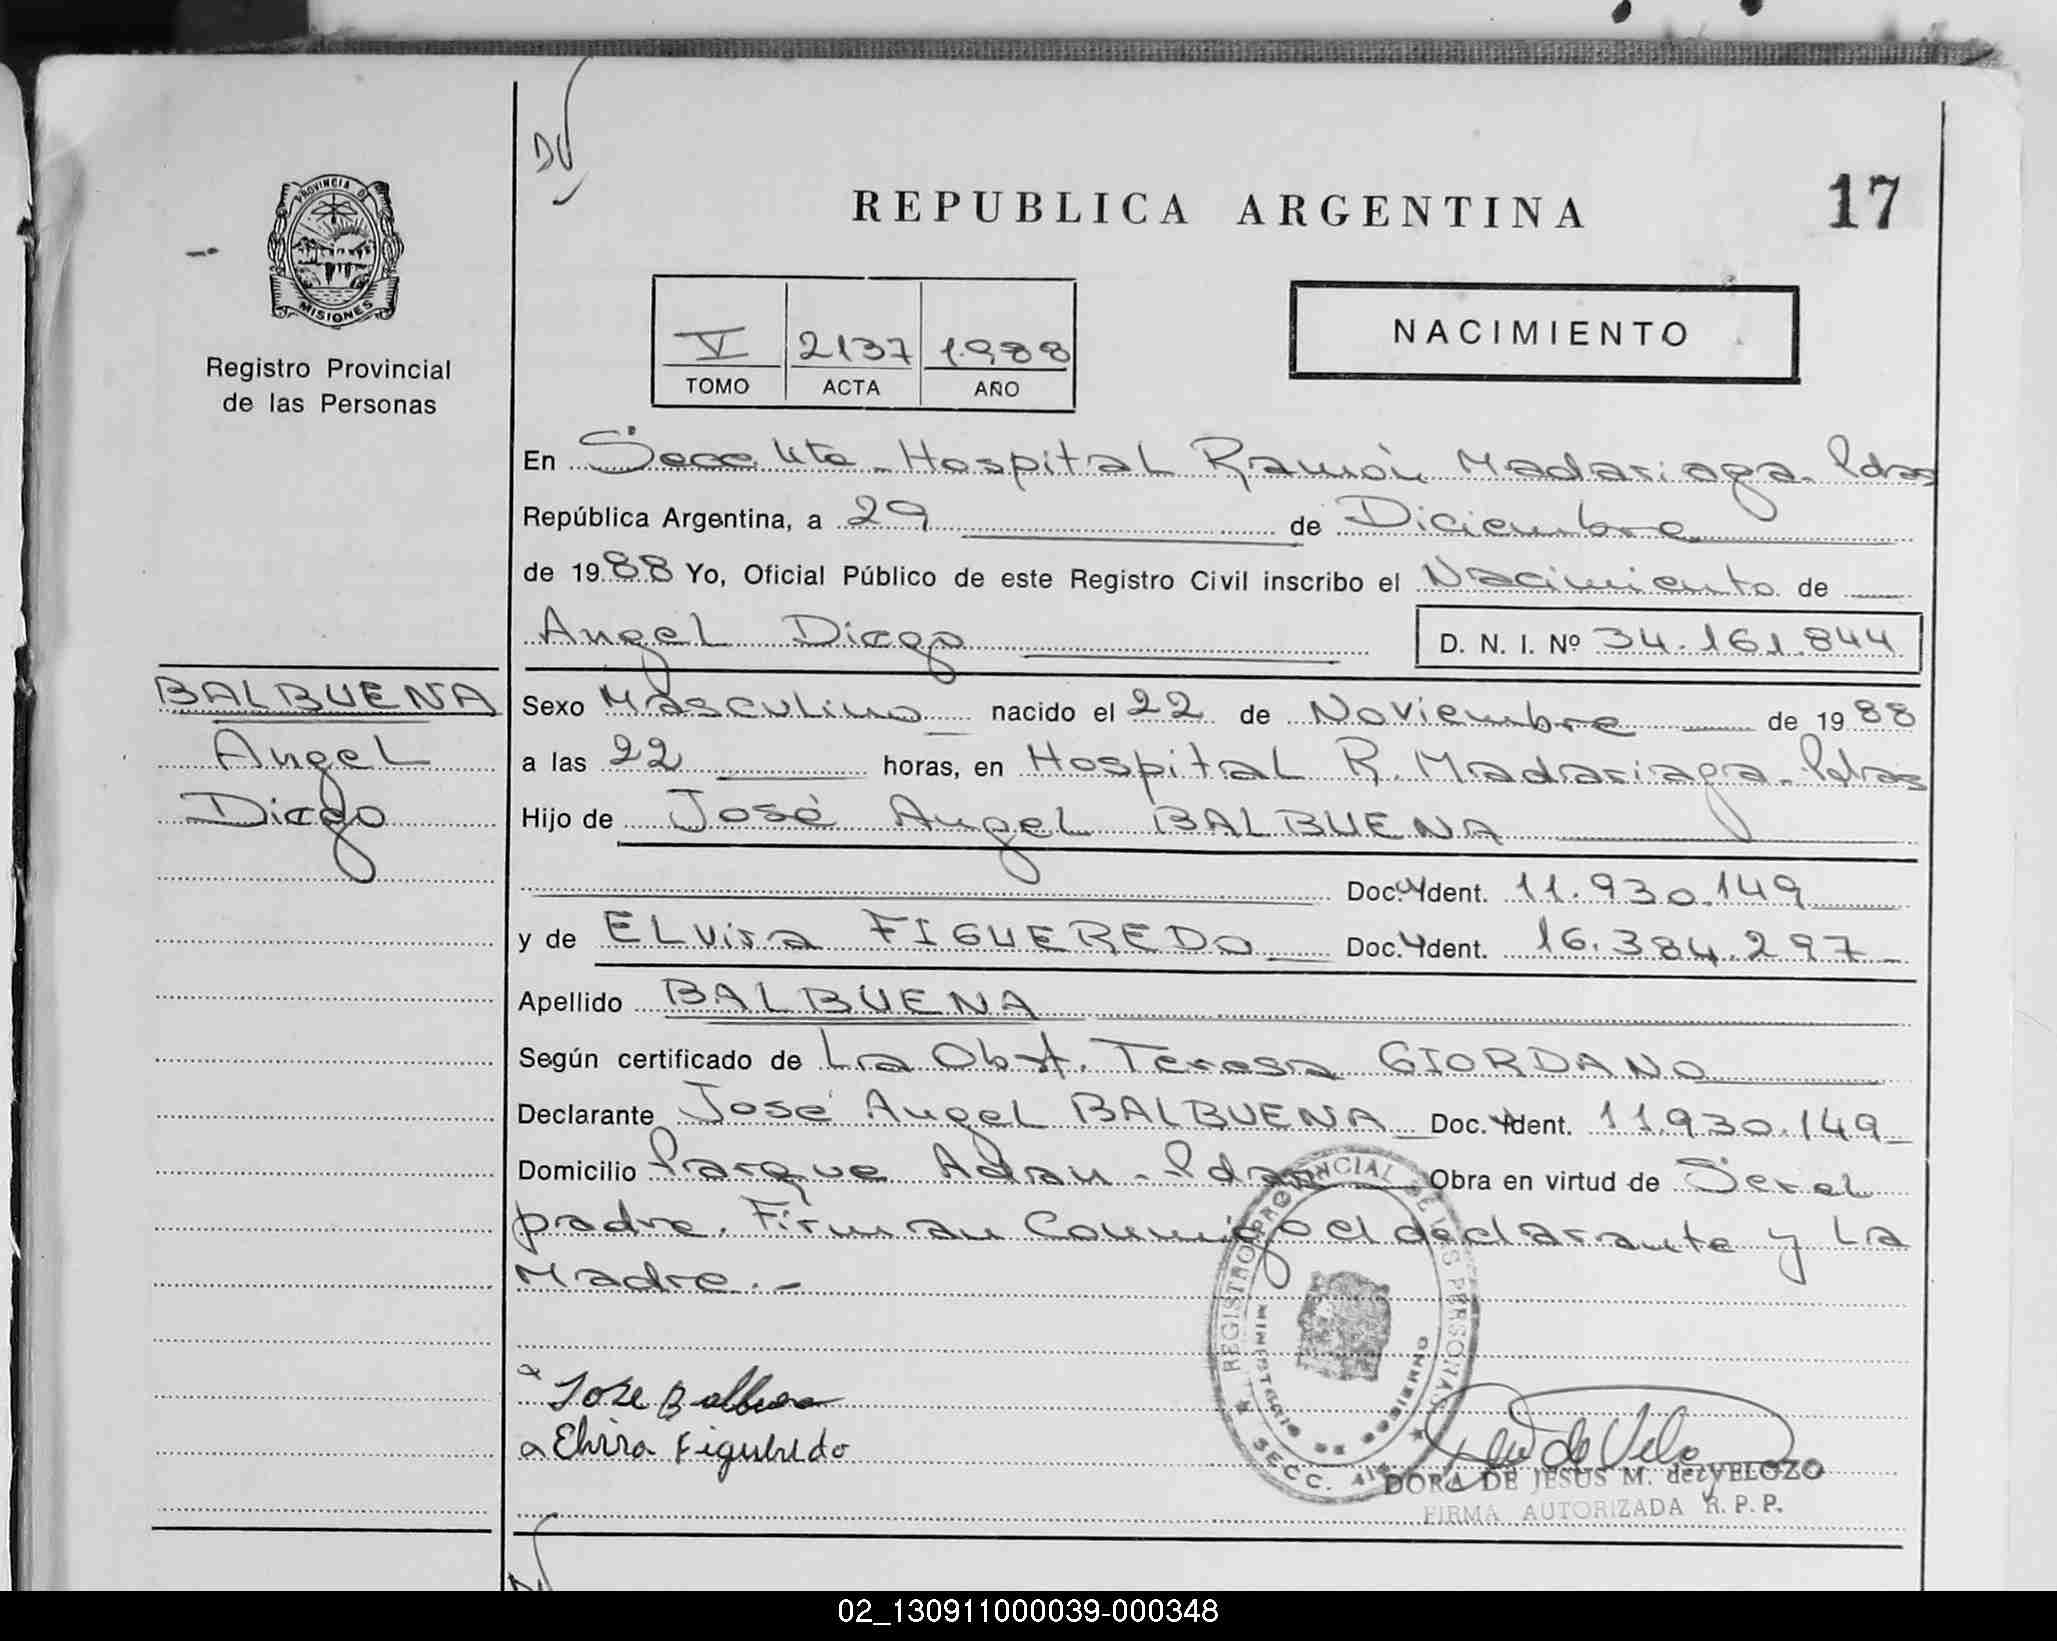 DV
PROVINCIA DE
MISIONES
Registro Provincial
de las Personas
REPUBLICA ARGENTINA
17
V 2137 1.988
TOMO ACTA AÑO
NACIMIENTO
En Secc. 4ta - Hospital Ramón Madariaga. Pdas
República Argentina, a 29 de Diciembre
de 1988 Yo, Oficial Público de este Registro Civil inscribo el Nacimiento de
Angel Diego D. N. I. Nº 34.161.844
BALBUENA
Angel
Diego
Sexo Masculino nacido el 22 de Noviembre de 1988
a las 22 horas, en Hospital R. Madariaga. Pdas
Hijo de José Angel BALBUENA
Doc. Ident. 11.930.149
y de ELVira FIGUEREDO Doc. Ident. 16.384.297
Apellido BALBUENA
Según certificado de La Obst. Teresa GIORDANO
Declarante José Angel BALBUENA Doc. Ident. 11.930.149
Domicilio Parque Adan - Pdas Obra en virtud de Ser el
padre. Firman Conmigo el declarante y La
Madre.-
REGISTRO PROVINCIAL DE LAS PERSONAS
MINISTERIO DE GOBIERNO
SECC.
Jose Balbuena
Elvira Figueredo
DORA DE JESUS M. de VELOZO
FIRMA AUTORIZADA R. P. P.
02_130911000039-000348